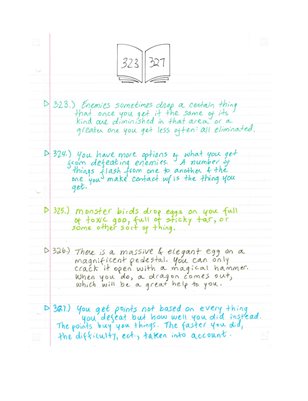 323 327
▷ 323.) Enemies sometimes drop a certain thing
that once you get it the same of its
kind are diminished in that area, or a
greater one you get less often: all eliminated.
▷ 324.) You have more options of what you get
from defeating enemies. A number of
things flash from one to another & the
one you make contact w/ is the thing you
get.
▷ 325.) Monster birds drop eggs on you full
of toxic goo, full of sticky tar, or
some other sort of thing.
▷ 326.) There is a massive & elegant egg on a
magnificent pedestal. You can only
crack it open with a magical hammer.
When you do, a dragon comes out,
which will be a great help to you.
▷ 327.) You get points not based on every thing
you defeat but how well you did instead.
The points buy you things. The faster you did,
the difficulty, ect., taken into account.